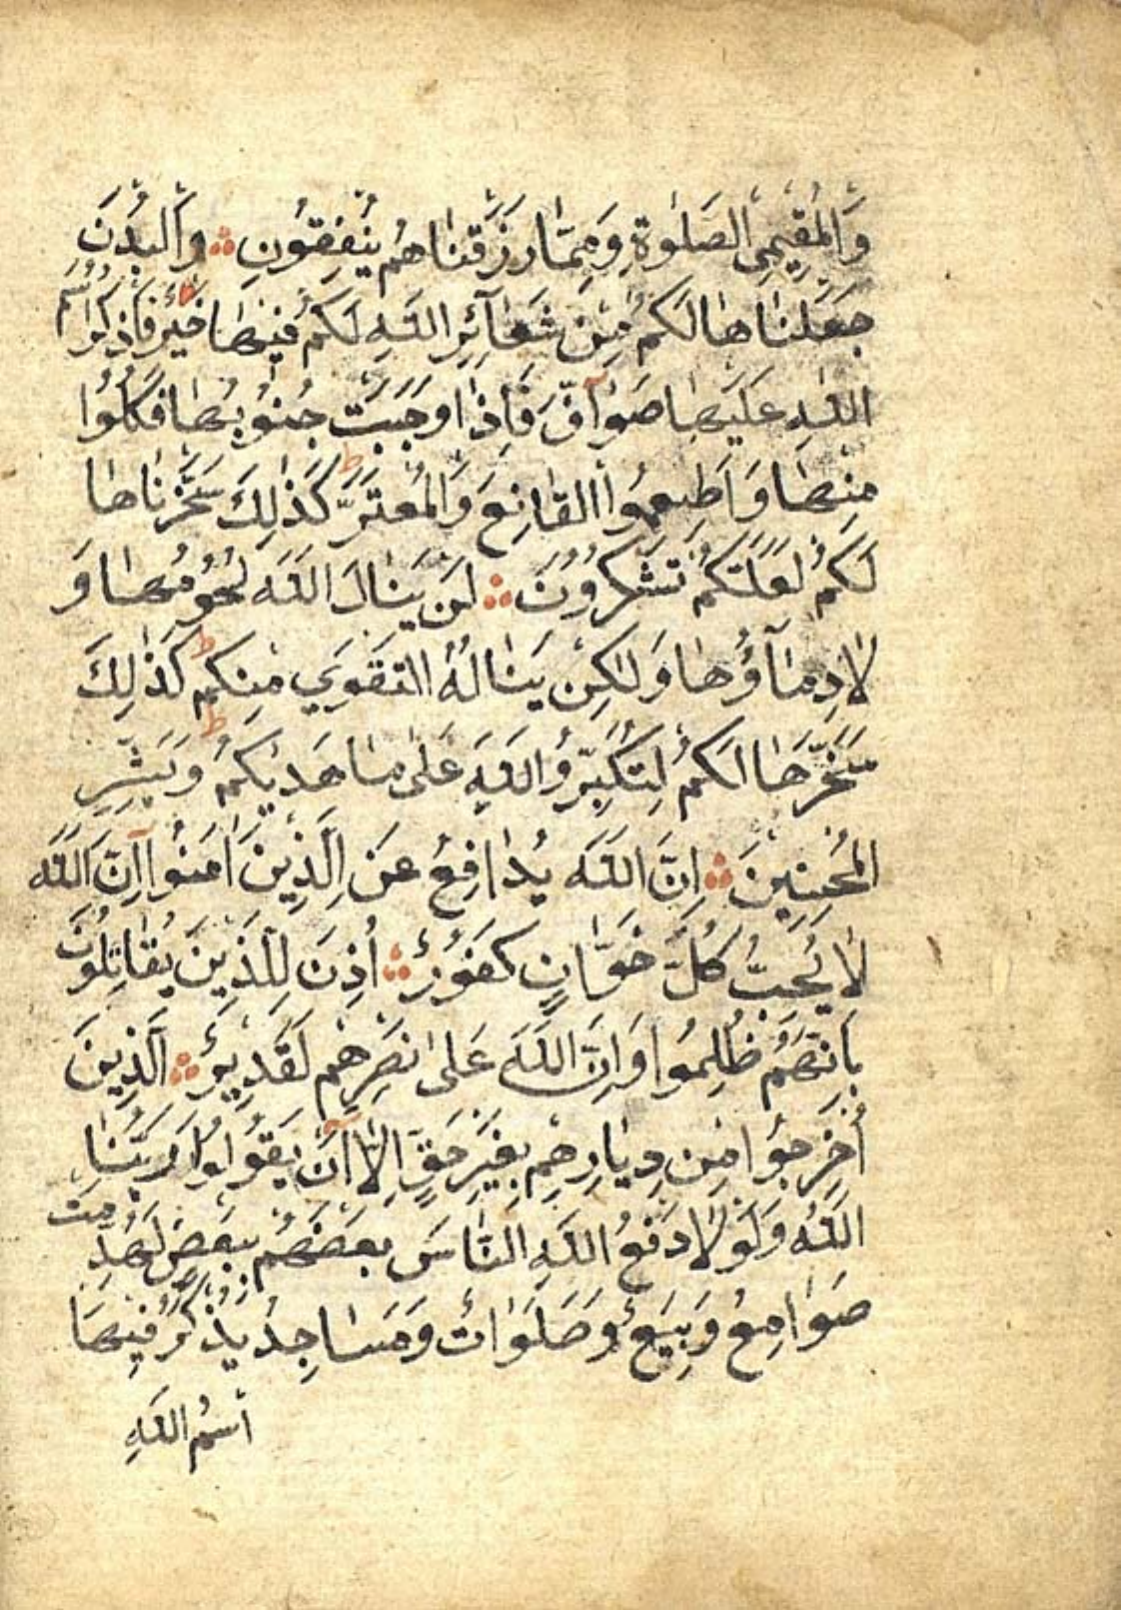 وَالْمُقِيمِي الصَّلٰوةِ وَمِمَّا رَزَقْنَاهُمْ يُنْفِقُونَ ∴ وَالْبُدْنَ
جَعَلْنَاهَا لَكُمْ مِنْ شَعَآئِرِ اللَّهِ لَكُمْ فِيهَا خَيْرٌ ط فَاذْكُرُوا اسْمَ
اللَّهِ عَلَيْهَا صَوَآفَّ فَاِذَا وَجَبَتْ جُنُوبُهَا فَكُلُوا
مِنْهَا وَاَطْعِمُوا الْقَانِعَ وَالْمُعْتَرَّ ط كَذٰلِكَ سَخَّرْنَاهَا
لَكُمْ لَعَلَّكُمْ تَشْكُرُونَ ∴ لَنْ يَنَالَ اللَّهَ لُحُومُهَا وَ
لَا دِمَآؤُهَا وَلٰكِنْ يَنَالُهُ التَّقْوٰي مِنْكُمْ ط كَذٰلِكَ
سَخَّرَهَا لَكُمْ لِتُكَبِّرُوا اللَّهَ عَلٰى مَا هَدٰيكُمْ ط وَبَشِّرِ
الْمُحْسِنِينَ ∴ اِنَّ اللَّهَ يُدَافِعُ عَنِ الَّذِينَ اٰمَنُوا اِنَّ اللَّهَ
لَا يُحِبُّ كُلَّ خَوَّانٍ كَفُورٍ ∴ اُذِنَ لِلَّذِينَ يُقَاتَلُونَ
بِاَنَّهُمْ ظُلِمُوا وَاِنَّ اللَّهَ عَلٰى نَصْرِهِمْ لَقَدِيرٌ ∴ اَلَّذِينَ
اُخْرِجُوا مِنْ دِيَارِهِمْ بِغَيْرِ حَقٍّ اِلَّا اَنْ يَقُولُوا رَبُّنَا
اللَّهُ وَلَوْلَا دَفْعُ اللَّهِ النَّاسَ بَعْضَهُمْ بِبَعْضٍ لَهُدِّمَتْ
صَوَامِعُ وَبِيَعٌ وَصَلَوَاتٌ وَمَسَاجِدُ يُذْكَرُ فِيهَا
اسْمُ اللَّهِ